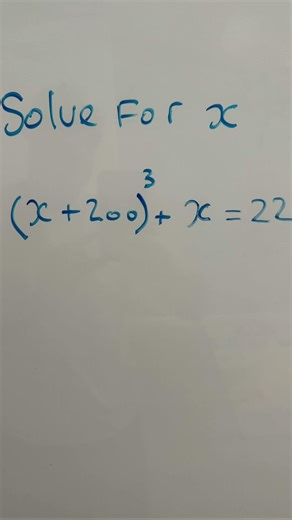 Solve For x
(x+200)³ + x = 22